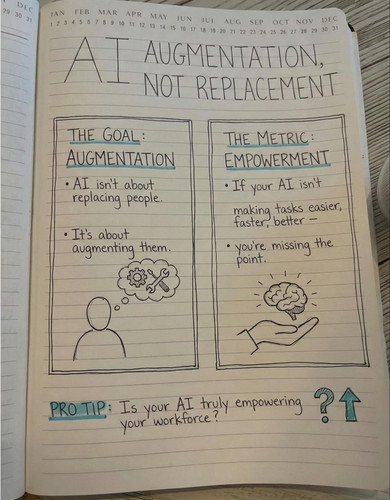 DEC
29 30 31
JAN FEB MAR APR MAY JUN JUL AUG SEP OCT NOV DEC
1 2 3 4 5 6 7 8 9 10 11 12 13 14 15 16 17 18 19 20 21 22 23 24 25 26 27 28 29 30 31
AI AUGMENTATION,
NOT REPLACEMENT
THE GOAL:
AUGMENTATION
• AI isn't about
replacing people.
• It's about
augmenting them.
THE METRIC:
EMPOWERMENT
• If your AI isn't
making tasks easier,
faster, better —
• you're missing the
point.
PRO TIP: Is your AI truly empowering
your workforce?
?